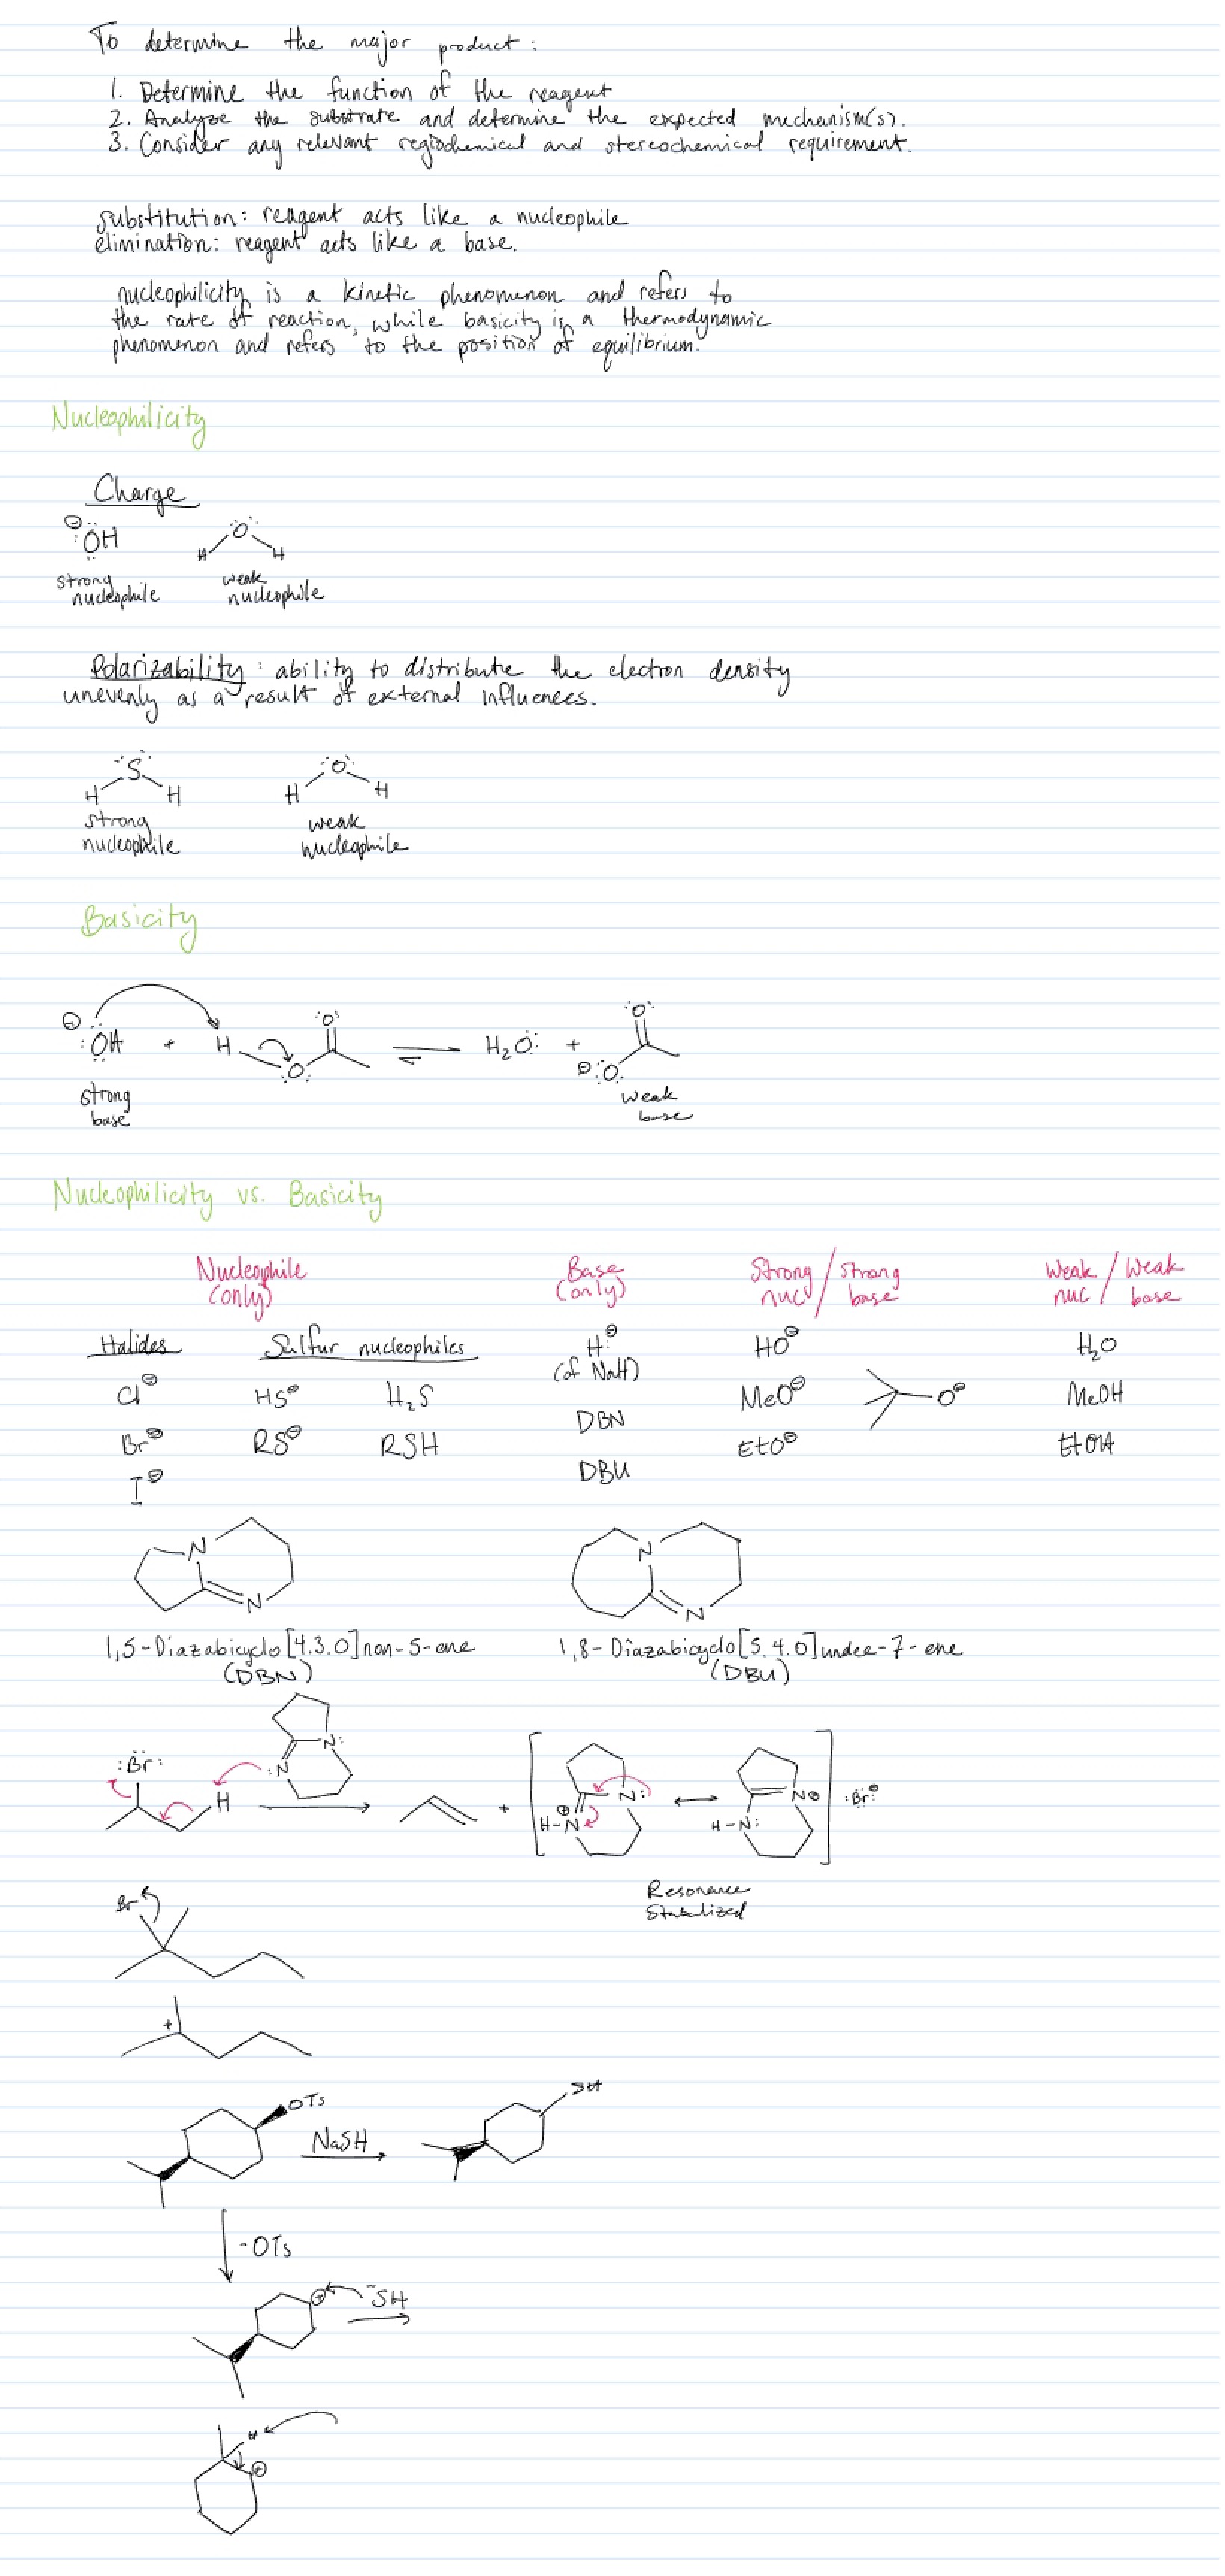 To determine the major product:
1. Determine the function of the reagent
2. Analyze the substrate and determine the expected mechanism(s).
3. Consider any relevant regiochemical and stereochemical requirement.
substitution: reagent acts like a nucleophile
elimination: reagent acts like a base.
nucleophilicity is a kinetic phenomenon and refers to
the rate of reaction, while basicity is a thermodynamic
phenomenon and refers to the position of equilibrium.
Nucleophilicity
Charge
⊖:ÖH H O H
strong nucleophile weak nucleophile
Polarizability: ability to distribute the electron density
unevenly as a result of external influences.
H S H H O H
strong nucleophile weak nucleophile
Basicity
⊖:OH + H O O ⇌ H2O: + ⊖:O: O
strong base weak base
Nucleophilicity vs. Basicity
Nucleophile (only) Base (only) Strong nuc / strong base Weak nuc / weak base
Halides Sulfur nucleophiles H:⊖ (of NaH) HO⊖ H2O
Cl⊖ HS⊖ H2S DBN MeO⊖ O⊖ MeOH
Br⊖ RS⊖ RSH DBU EtO⊖ EtOH
I⊖
N N N N
1,5-Diazabicyclo[4.3.0]non-5-ene 1,8-Diazabicyclo[5.4.0]undec-7-ene
(DBN) (DBU)
:Br: H :N N: + H-N⊕ N: ↔ H-N: N⊕ :Br:⊖
Resonance
Stabilized
Br
+
OTs NaSH SH
-OTs
⊕ -SH
H
⊕